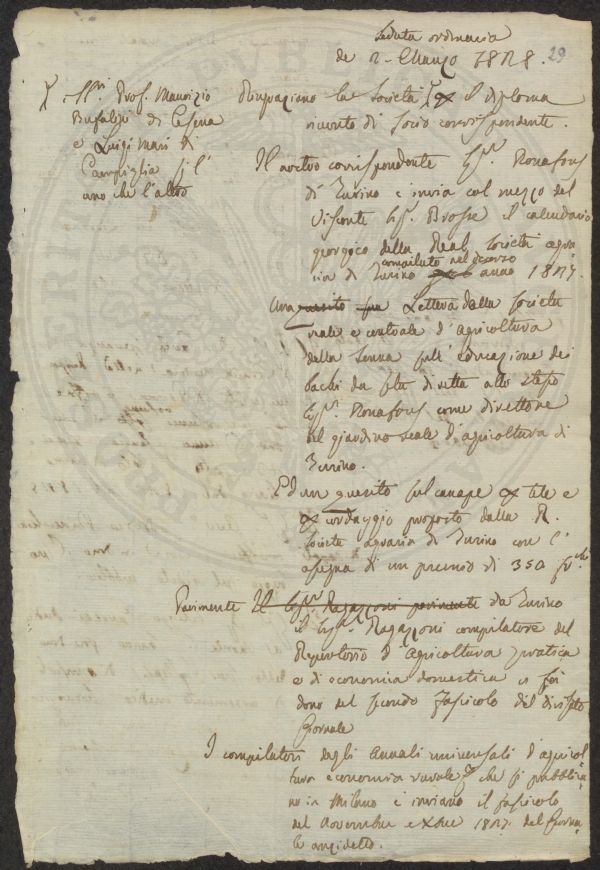 Seduta ordinaria
de 2 Marzo 1828.
29
X. Sri. Prof. Maurizio
Bufalini di Cesena
e Luigi Mari di
Campiglia
uno che l'altro
Ringraziano la Società il diploma
ricevuto di socio corrispondente.
Il nostro corrispondente Sigr. Bonafous
di Turino c'invia col mezzo del
Visconte Sigr. Brosse il calendario
georgico della Real Società agra
compilato nel decorso
ria di Turino anno 1827.
Una quesito Lettera dalla Società
reale e centrale d'agricoltura
della Senna sull'educazione dei
bachi da seta diretta allo stesso
Sigr. Bonafous come direttore
del giardino reale d'agricoltura di
Turino.
Ed un quesito sul canape tele e
cordaggio proposto dalla R.
Società agraria di Turino con l'
assegna di un premio di 350 fr.chi
Parimente Il Sigr. Ragazzoni parimente da Turino
il Sigr. Ragazzoni compilatore del
Repertorio d'agricoltura pratica
e di economia domestica ci fa
dono del secondo fascicolo del divisato
Giornale
I compilatori degli Annali universali d'agricol
tura economia rurale &c che si pubblica
no in Milano c'inviano il fascicolo
del Novembre e Xbre 1827. del Giorna
le anzidetto.